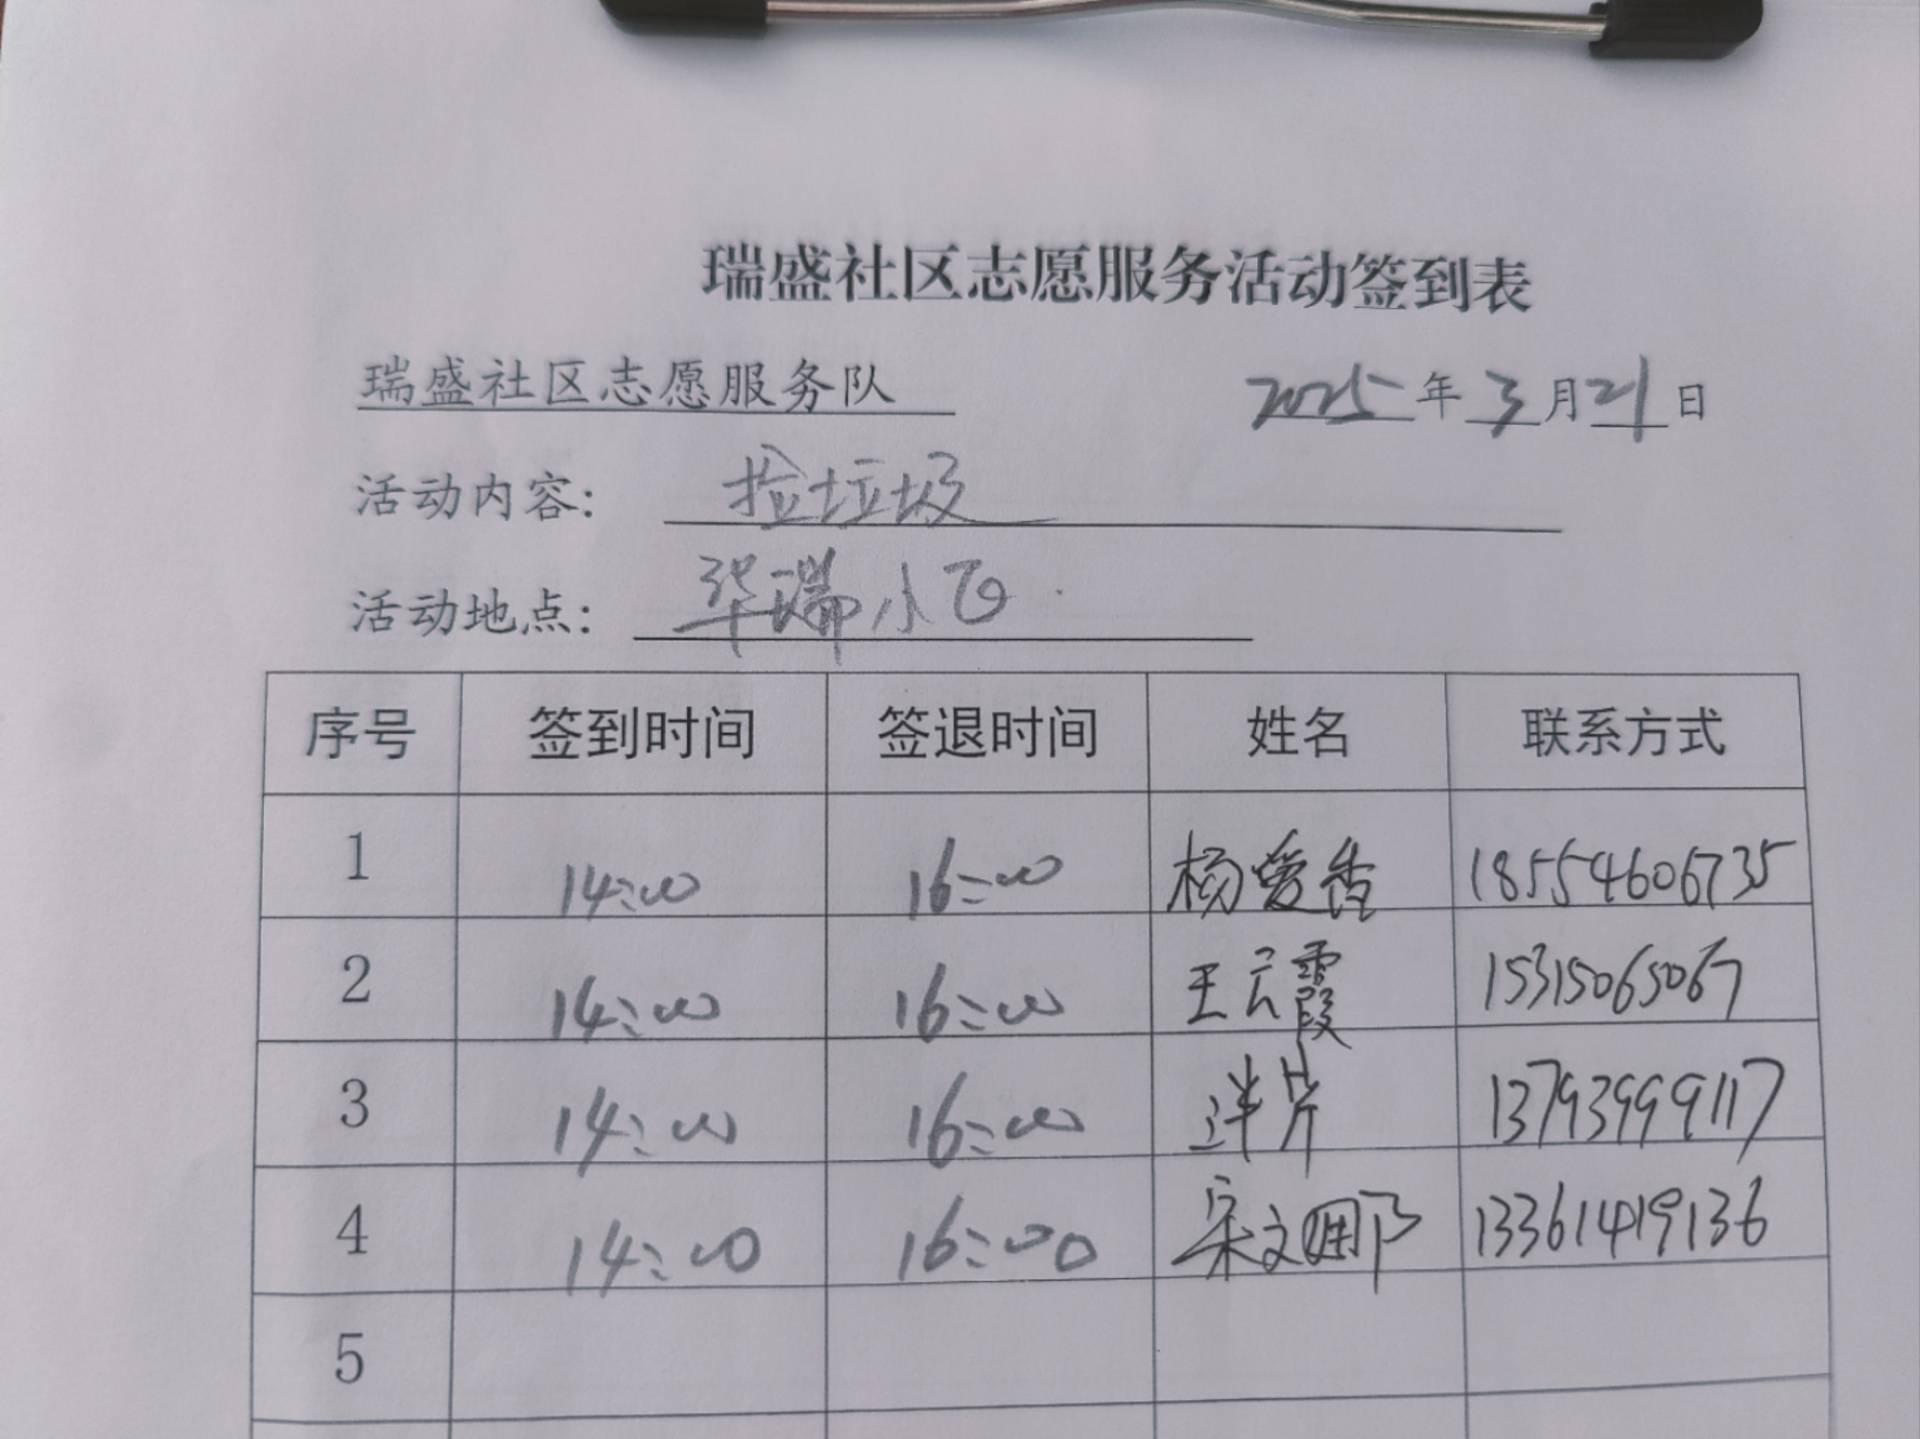 瑞盛社区志愿服务活动签到表
瑞盛社区志愿服务队 2025年3月21日
活动内容: 捡垃圾
活动地点: 华瑞小区
序号 签到时间 签退时间 姓名 联系方式
1 14:00 16:00 杨爱香 18554606735
2 14:00 16:00 王云霞 15315065067
3 14:00 16:00 13793999117
4 14:00 16:00 宋文 13361419136
5